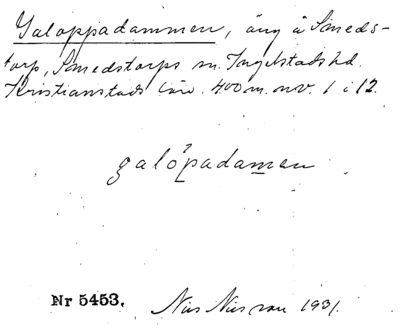 Galoppadammen, äng å Smeds-
torp, Smedstorps sn. Ingelstads hd.
Kristianstads län. 400 m. nv. 1 i 12.
galòpadamen
Nr 5453. Nils Nilsson 1931.